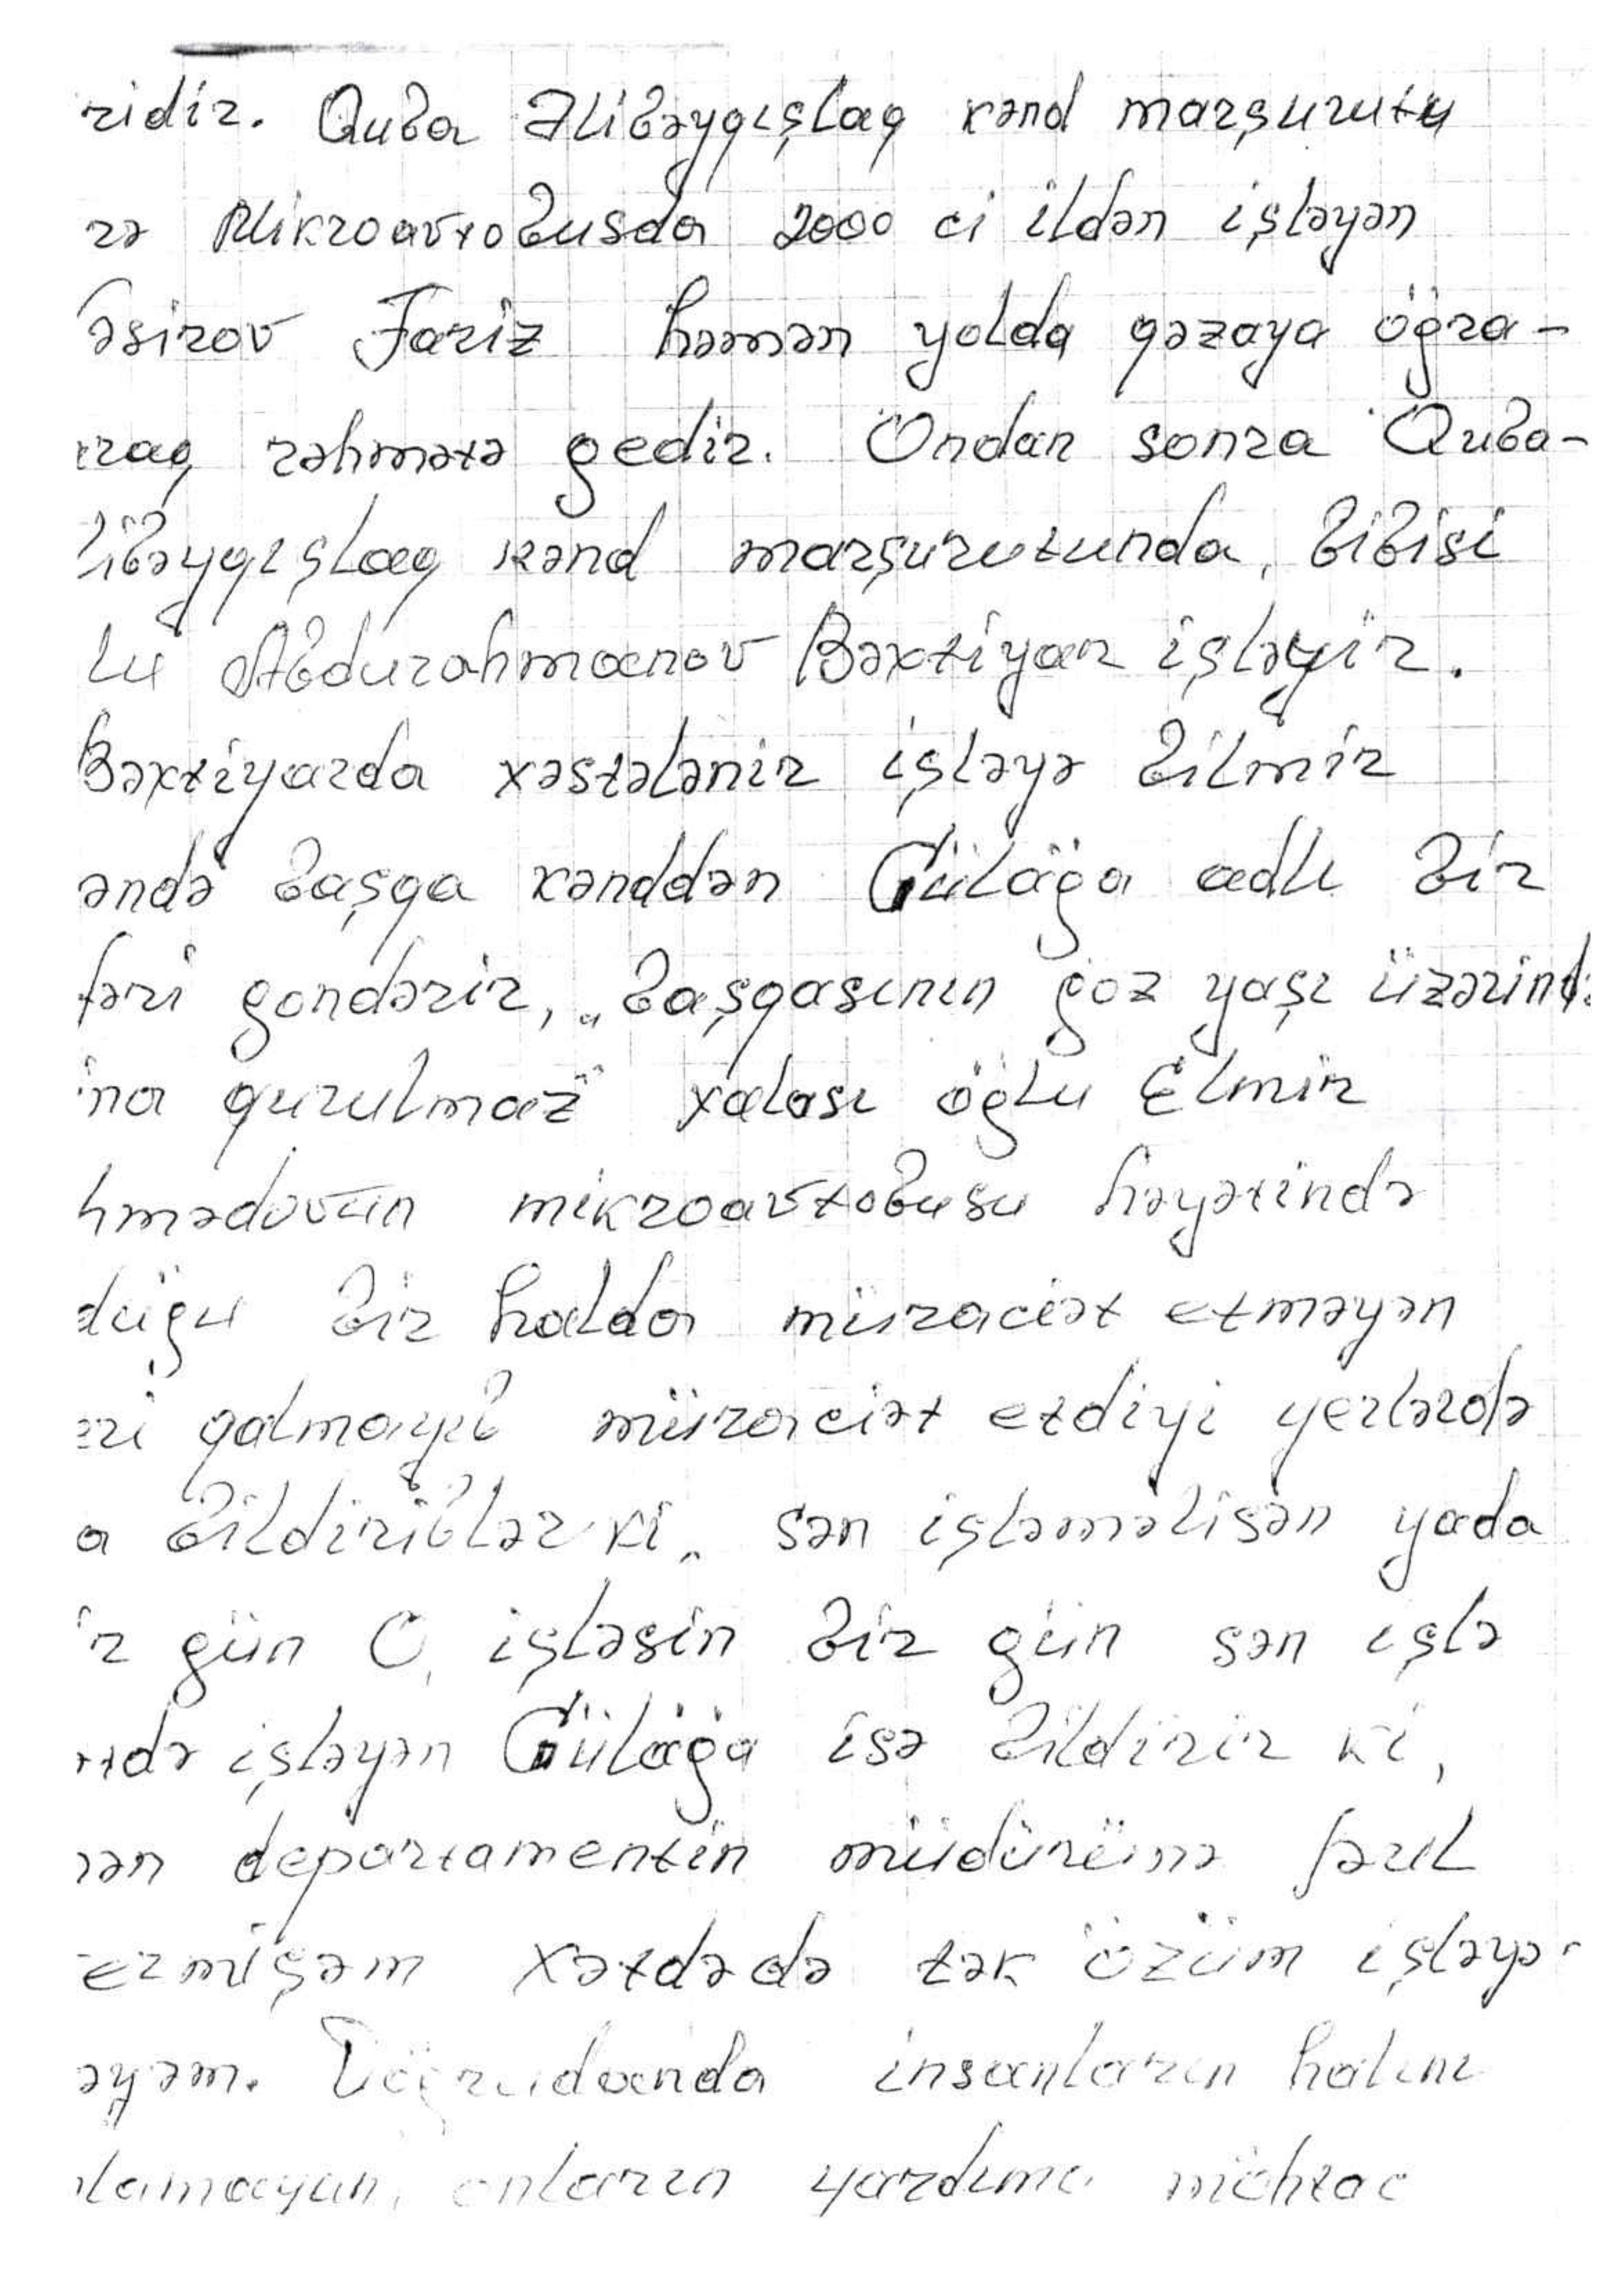 ridir. Quba Əlibəyqışlaq kənd marşurutu
rə Mikroavtobusda 2000 ci ildən işləyən
əsirov Fariz həmən yolda qəzaya öğra-
raq rəhmətə gedir. Ondan sonra Quba-
libəyqışlaq kənd marşurutunda, bibisi
lu Abdurahmanov Bəxtiyar işləyir.
Bəxtiyarda xəstələnir işləyə bilmir
əndə başqa kənddən Gülağa adlı bir
fəri gondərir, „başqasının göz yaşı üzərində
ina qurulmaz" xalası öğlu Elmir
hmədovun mikroavtobusu həyətində
duğu bir halda müraciət etməyən
eri qalmayıb müraciət etdiyi yerlərdə
a bildiriblər ki, sən işləməlisən yada
ir gün O, işləsin bir gün sən işlə
ətdə işləyən Gülağa isə bildirir ki,
ən departamentin müdürünə pul
ermişəm xətdədə tək özüm işləyə-
əyəm. Döğrudanda insanların halını
lamayan, onların yardıma möhtac